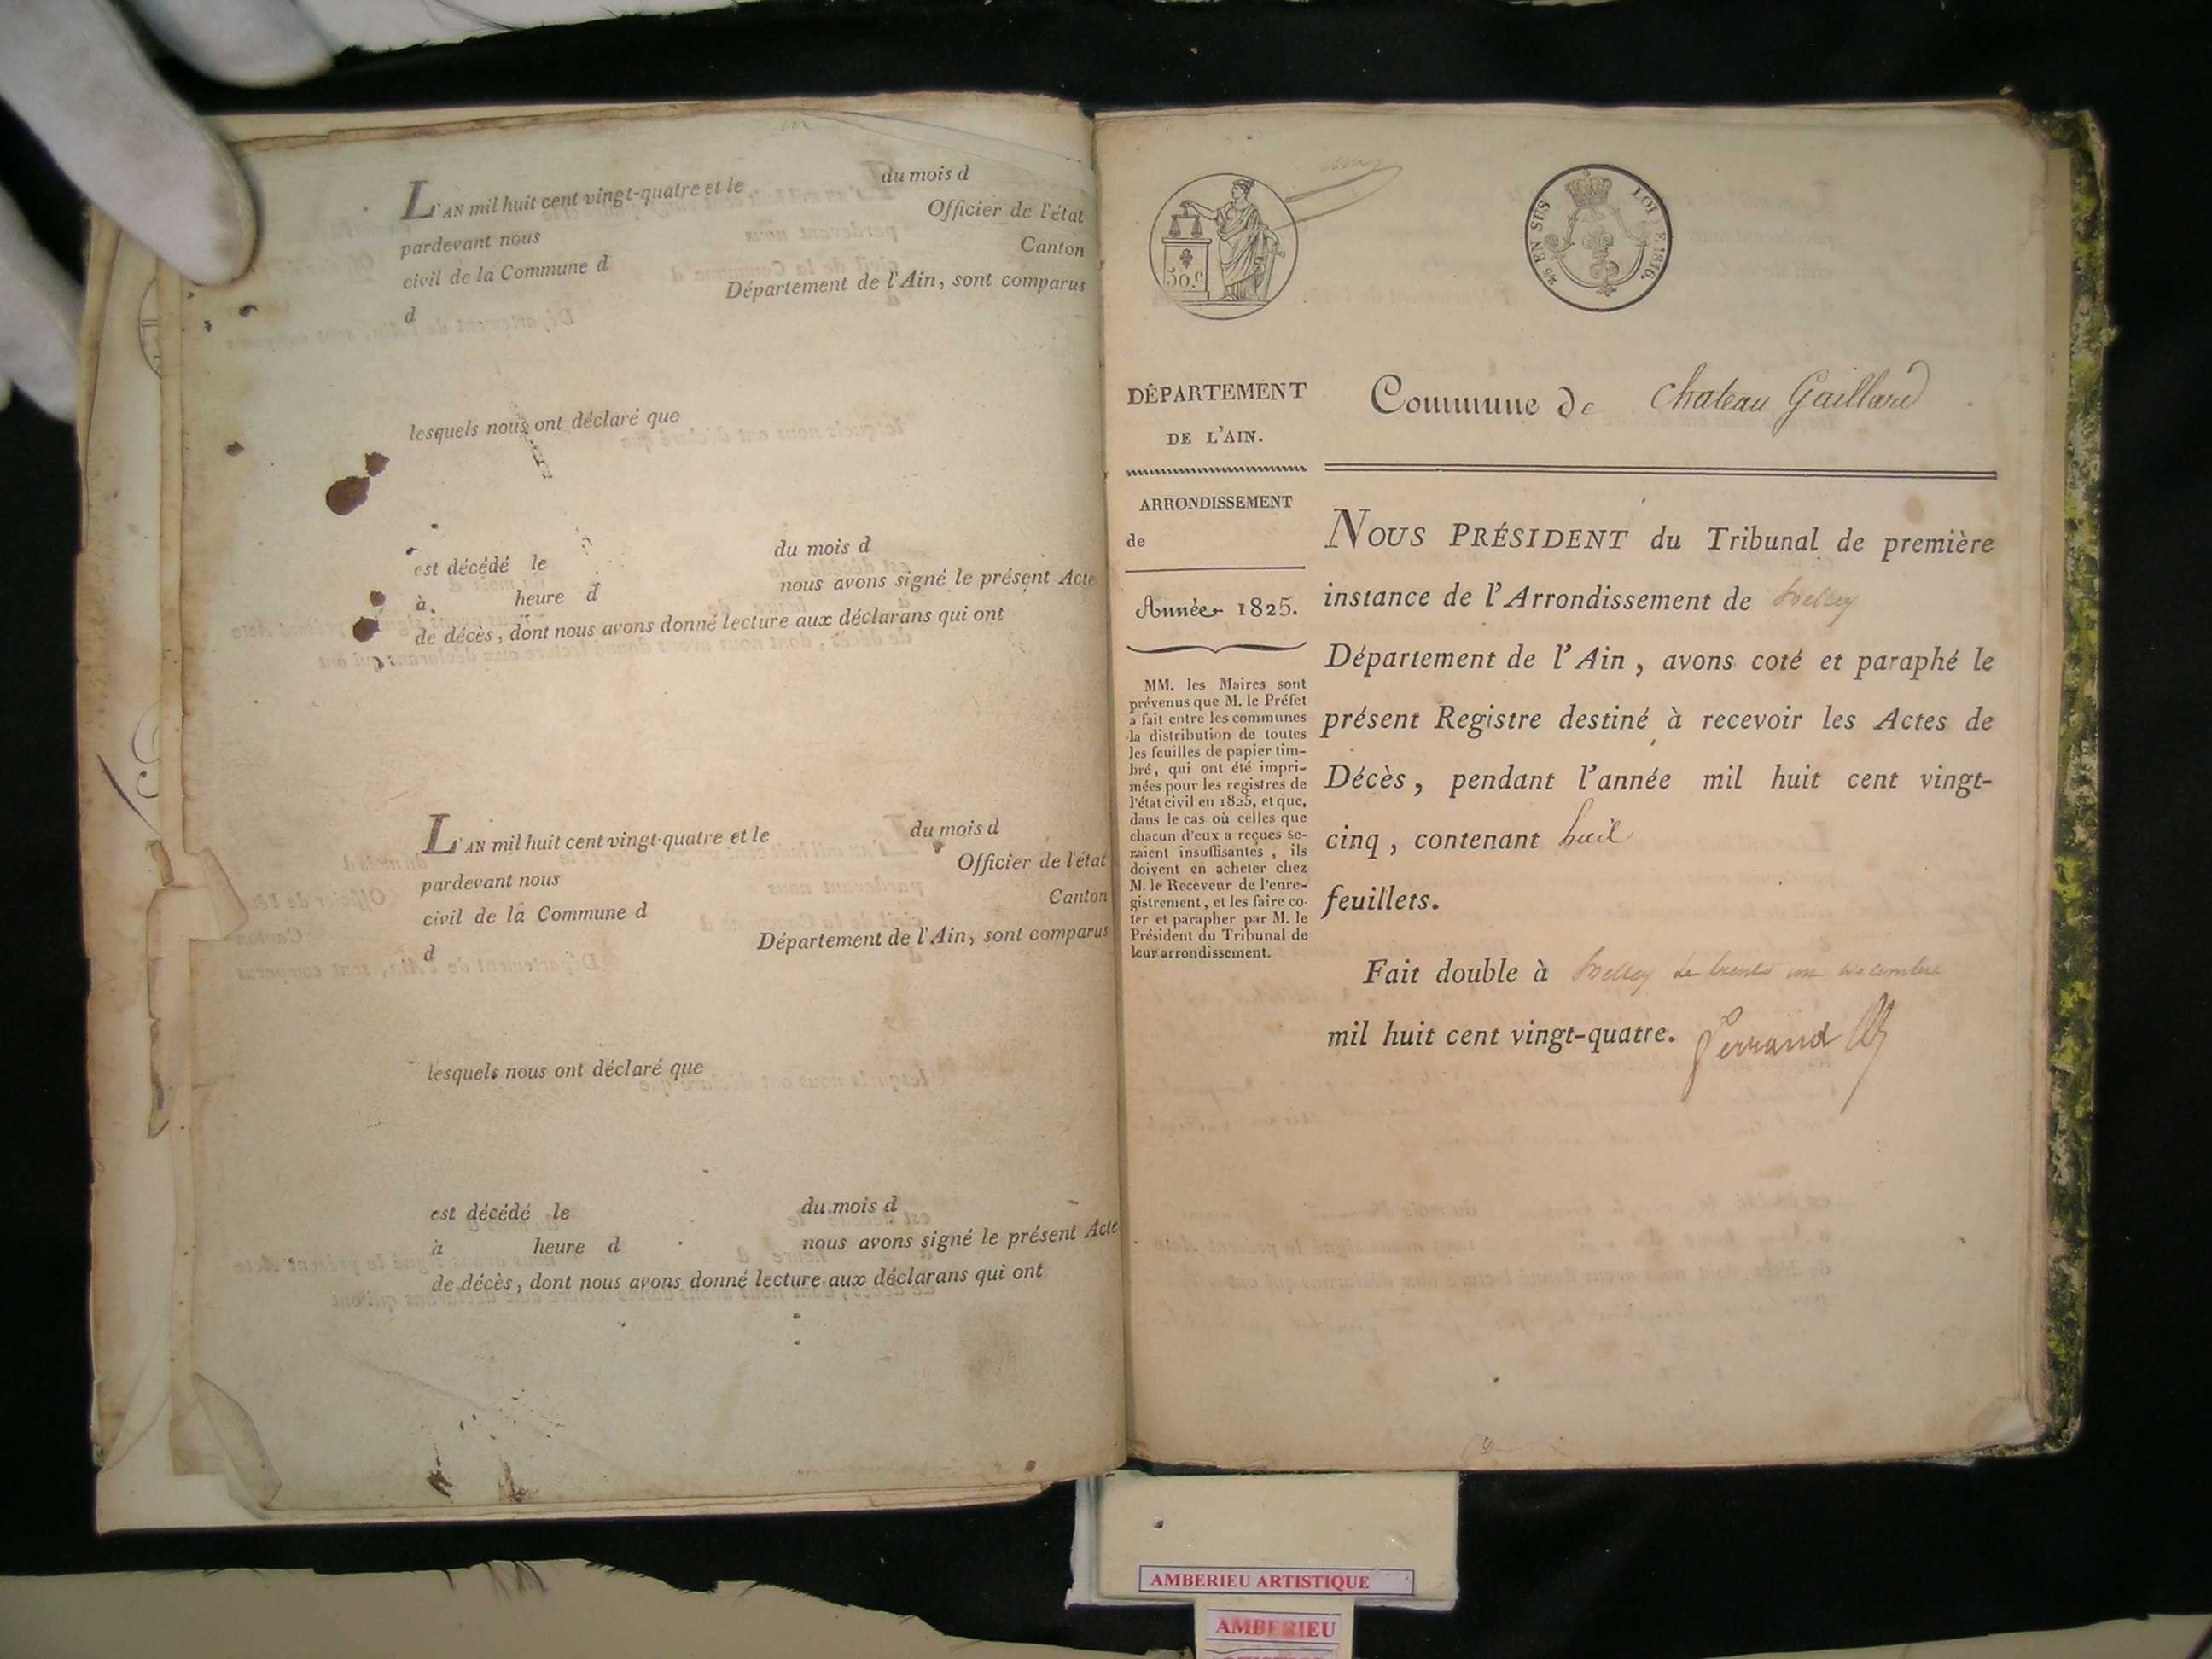 L'AN mil huit cent vingt-quatre et le du mois d
pardevant nous Officier de l'état
civil de la Commune d Canton
d Département de l'Ain, sont comparus
lesquels nous ont déclaré que
est décédé le du mois d
à heure d nous avons signé le présent Acte
de décès, dont nous avons donné lecture aux déclarans qui ont
L'AN mil huit cent vingt-quatre et le du mois d
pardevant nous Officier de l'état
civil de la Commune d Canton
d Département de l'Ain, sont comparus
lesquels nous ont déclaré que
est décédé le du mois d
à heure d nous avons signé le présent Acte
de décès, dont nous avons donné lecture aux déclarans qui ont
50.c
EN SUS LOI DE 1816.
DÉPARTEMENT
DE L'AIN.
ARRONDISSEMENT
de
Année 1825.
MM. les Maires sont
prévenus que M. le Préfet
a fait entre les communes
la distribution de toutes
les feuilles de papier tim-
bré, qui ont été impri-
mées pour les registres de
l'état civil en 1825, et que,
dans le cas où celles que
chacun d'eux a reçues se-
raient insuffisantes, ils
doivent en acheter chez
M. le Receveur de l'enre-
gistrement, et les faire co-
ter et parapher par M. le
Président du Tribunal de
leur arrondissement.
Commune de chateau Gaillard
NOUS PRÉSIDENT du Tribunal de première
instance de l'Arrondissement de Belley
Département de l'Ain, avons coté et paraphé le
présent Registre destiné à recevoir les Actes de
Décès, pendant l'année mil huit cent vingt-
cinq, contenant huit
feuillets.
Fait double à Belley le trente un decembre
mil huit cent vingt-quatre. Perrand
AMBERIEU ARTISTIQUE
AMBERIEU